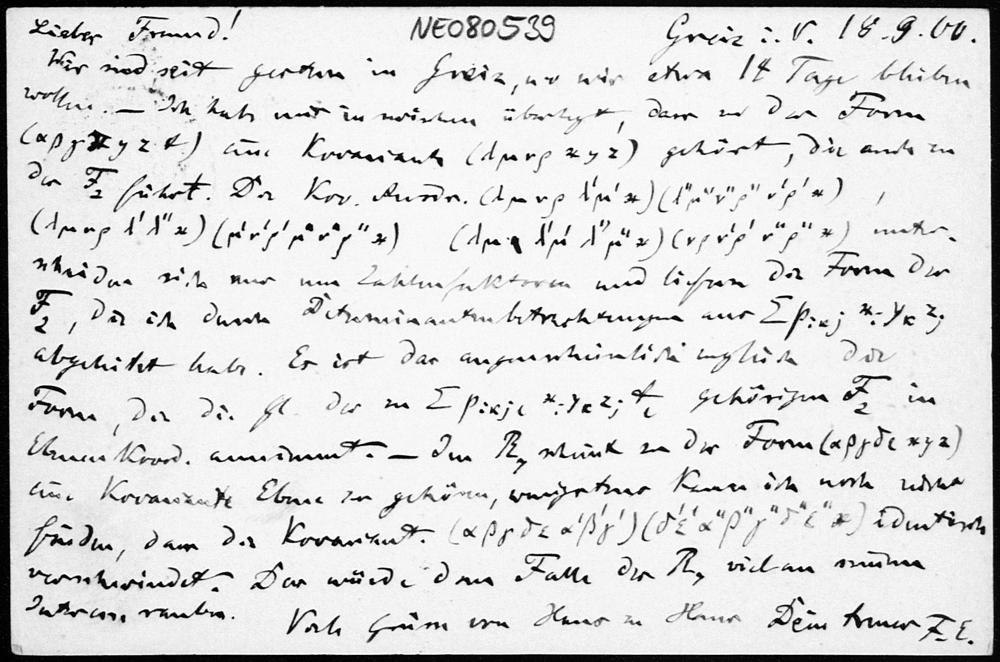 Lieber Freund! NE080539 Greiz i. V. 18.9.00.
Wir sind seit gestern in Greiz, wo wir etwa 14 Tage bleiben
wollen. — Ich habe mir inzwischen überlegt, dass zu der Form
(αβγxyzt) eine Kovariante (λμνρxyz) gehört, die auch zu
der F₂ führt. Der Kov. Ausdr. (λμνρ λ'μ'x)(λ"μ"ν"ρ" ν'ρ'x),
(λμνρ λ'λ"x)(μ'ν'ρ'μ"ν"ρ"x) (λμ λ'μ' λ"μ"x)(νρν'ρ' ν"ρ"x) unter-
scheiden sich nur um Zahlenfaktoren und liefern die Form der
F₂, die ich durch Determinantenbetrachtungen aus Σ pᵢₖⱼ xᵢyₖzⱼ
abgeleitet habe. Es ist das augenscheinlich zugleich die
Form, die die Gl. der zu Σ pᵢₖⱼₗ xᵢyₖzⱼtₗ gehörigen F₂ in
Ebenenkoord. annimmt. — Im R₇ scheint zu der Form (αβγδε xyz)
eine Kovariante Ebene zu gehören, wenigstens kann ich noch nicht
finden, dass die Kovariant. (αβγδε α'β'γ')(δ'ε' α"β"γ"δ"ε"x) identisch
verschwindet. Das würde dem Falle der R₇ viel an seinem
Interesse rauben. Viele Grüsse von Haus zu Haus Dein treuer F. E.